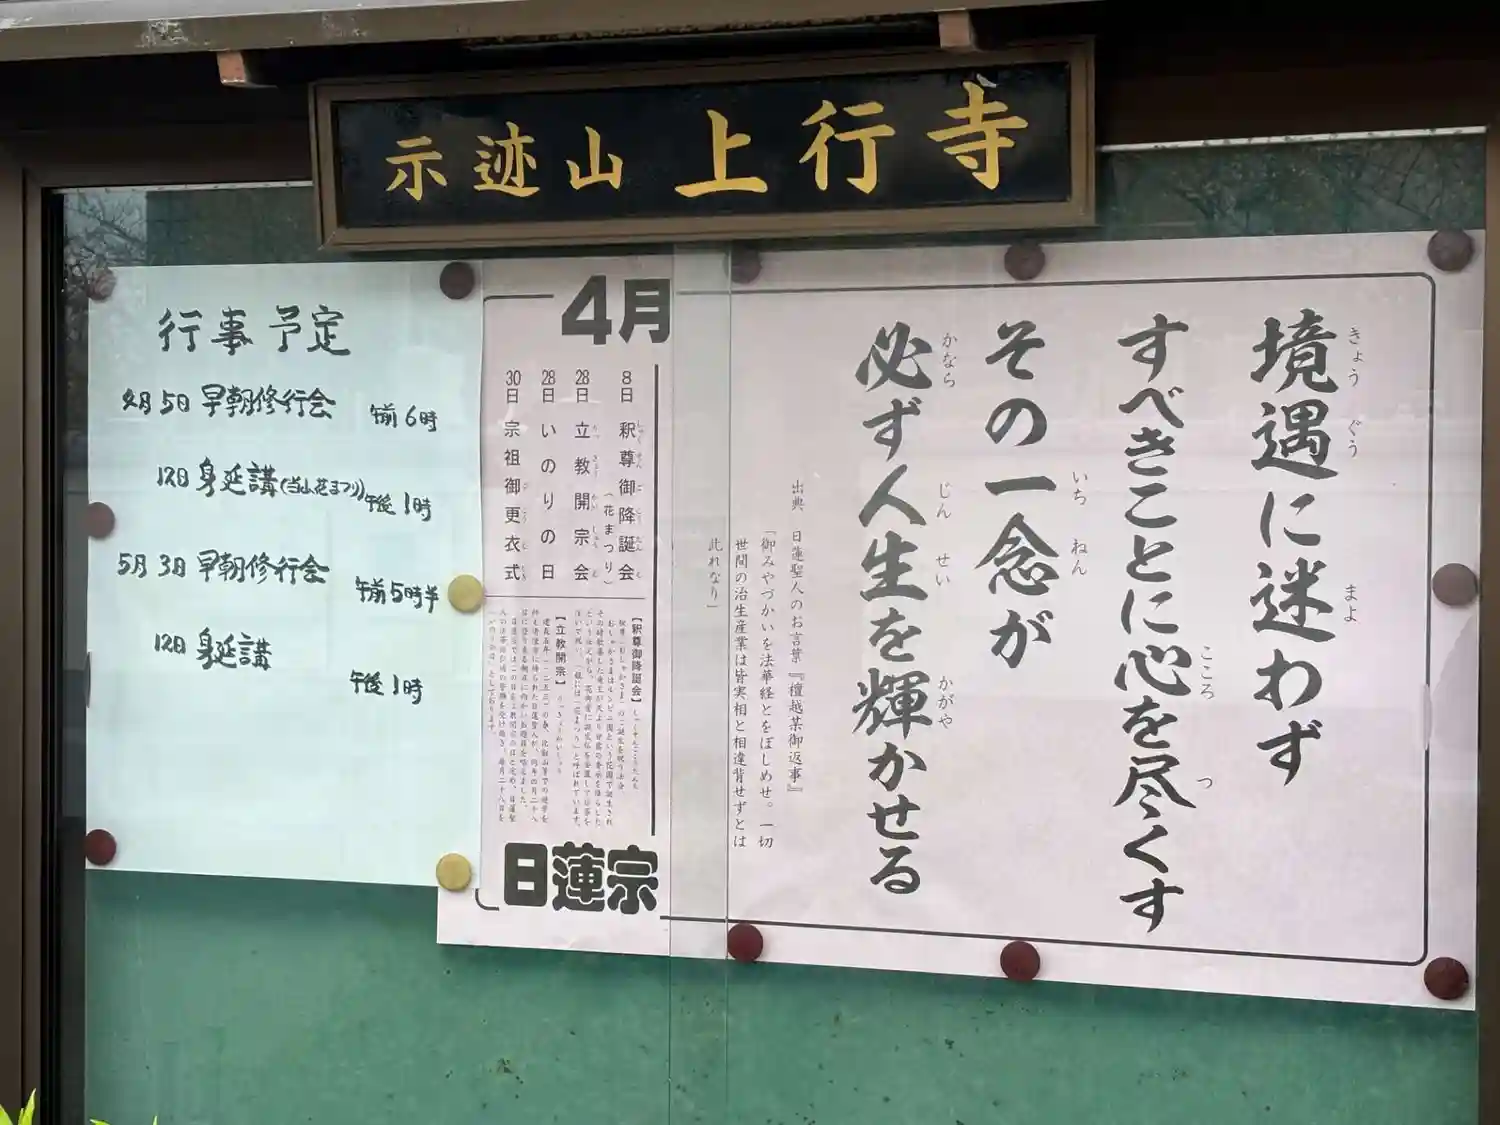 示迹山 上行寺
境遇に迷わず
きょう ぐう まよ
すべきことに心を尽くす
こころ つ
その一念が
いち ねん
必ず人生を輝かせる
かなら じん せい かがや
出典 日蓮聖人のお言葉『檀越某御返事』
「御みやづかいを法華経とをぼしめせ。一切
世間の治生産業は皆実相と相違背せずとは
此れなり」
4月
8日 釈尊御降誕会
(花まつり)
28日 立教開宗会
28日 いのりの日
30日 宗祖御更衣式
【釈尊御降誕会】
【立教開宗】
日蓮宗
行事予定
5日 早朝修行会 午前6時
12日 身延講(当山花まつり) 午後1時
5月3日 早朝修行会 午前5時半
12日 身延講 午後1時